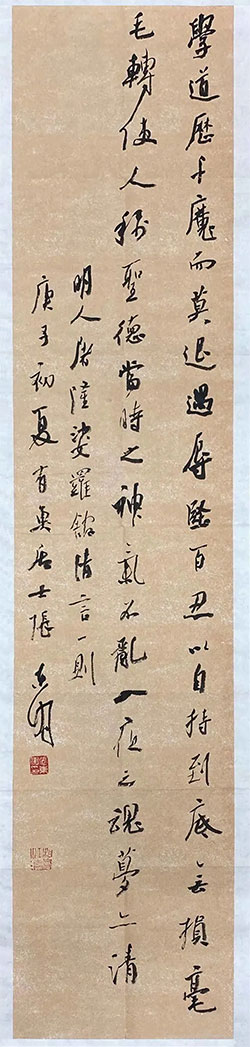 學道歷千魔而莫退遇辱堅百忍以自持到底無損毫
毛轉使人稱聖德當時之神氣不亂入夜之魂夢亦清
明人屠隆娑羅館清言一則
庚子初夏有居士張